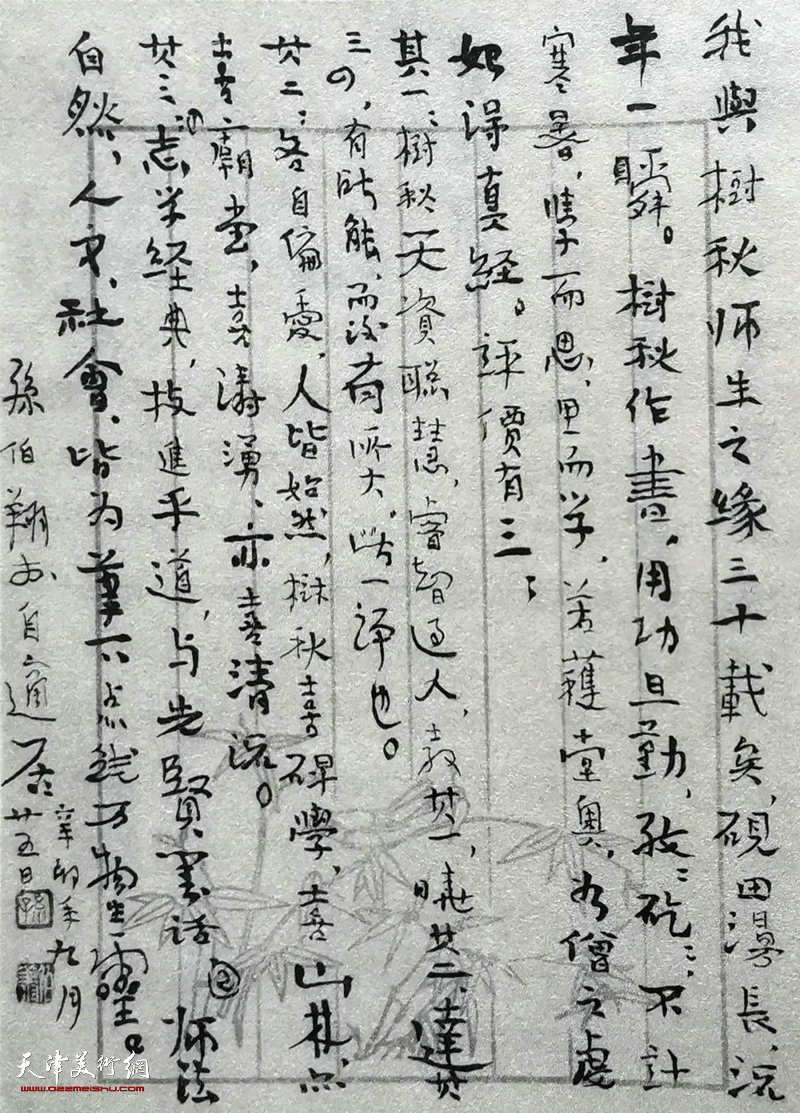 我與樹秋师生之緣三十載矣，硯田漫長，沅
年一瞬。樹秋作書，用功且勤，孜孜矻矻，不計
寒暑，嗜学而思，思而学，若獲堂奥，如僧之虔
如得真经。評價有三：
其一：樹秋天資聪慧，睿智过人，教其一，曉其二，達其
三四，有所能，而没有所失，此一評也。
其二：各自偏爱，人皆如然，樹秋喜碑學，喜山林，亦
喜廟堂，喜濤湧，亦喜清流。
其三：志学经典，技進乎道，与先賢墨话，师法
自然，人文，社會，皆为筆下点线万物生靈。
孫伯翔於自適居
辛卯年九月
廿五日
天津美術網
www.022meishu.com